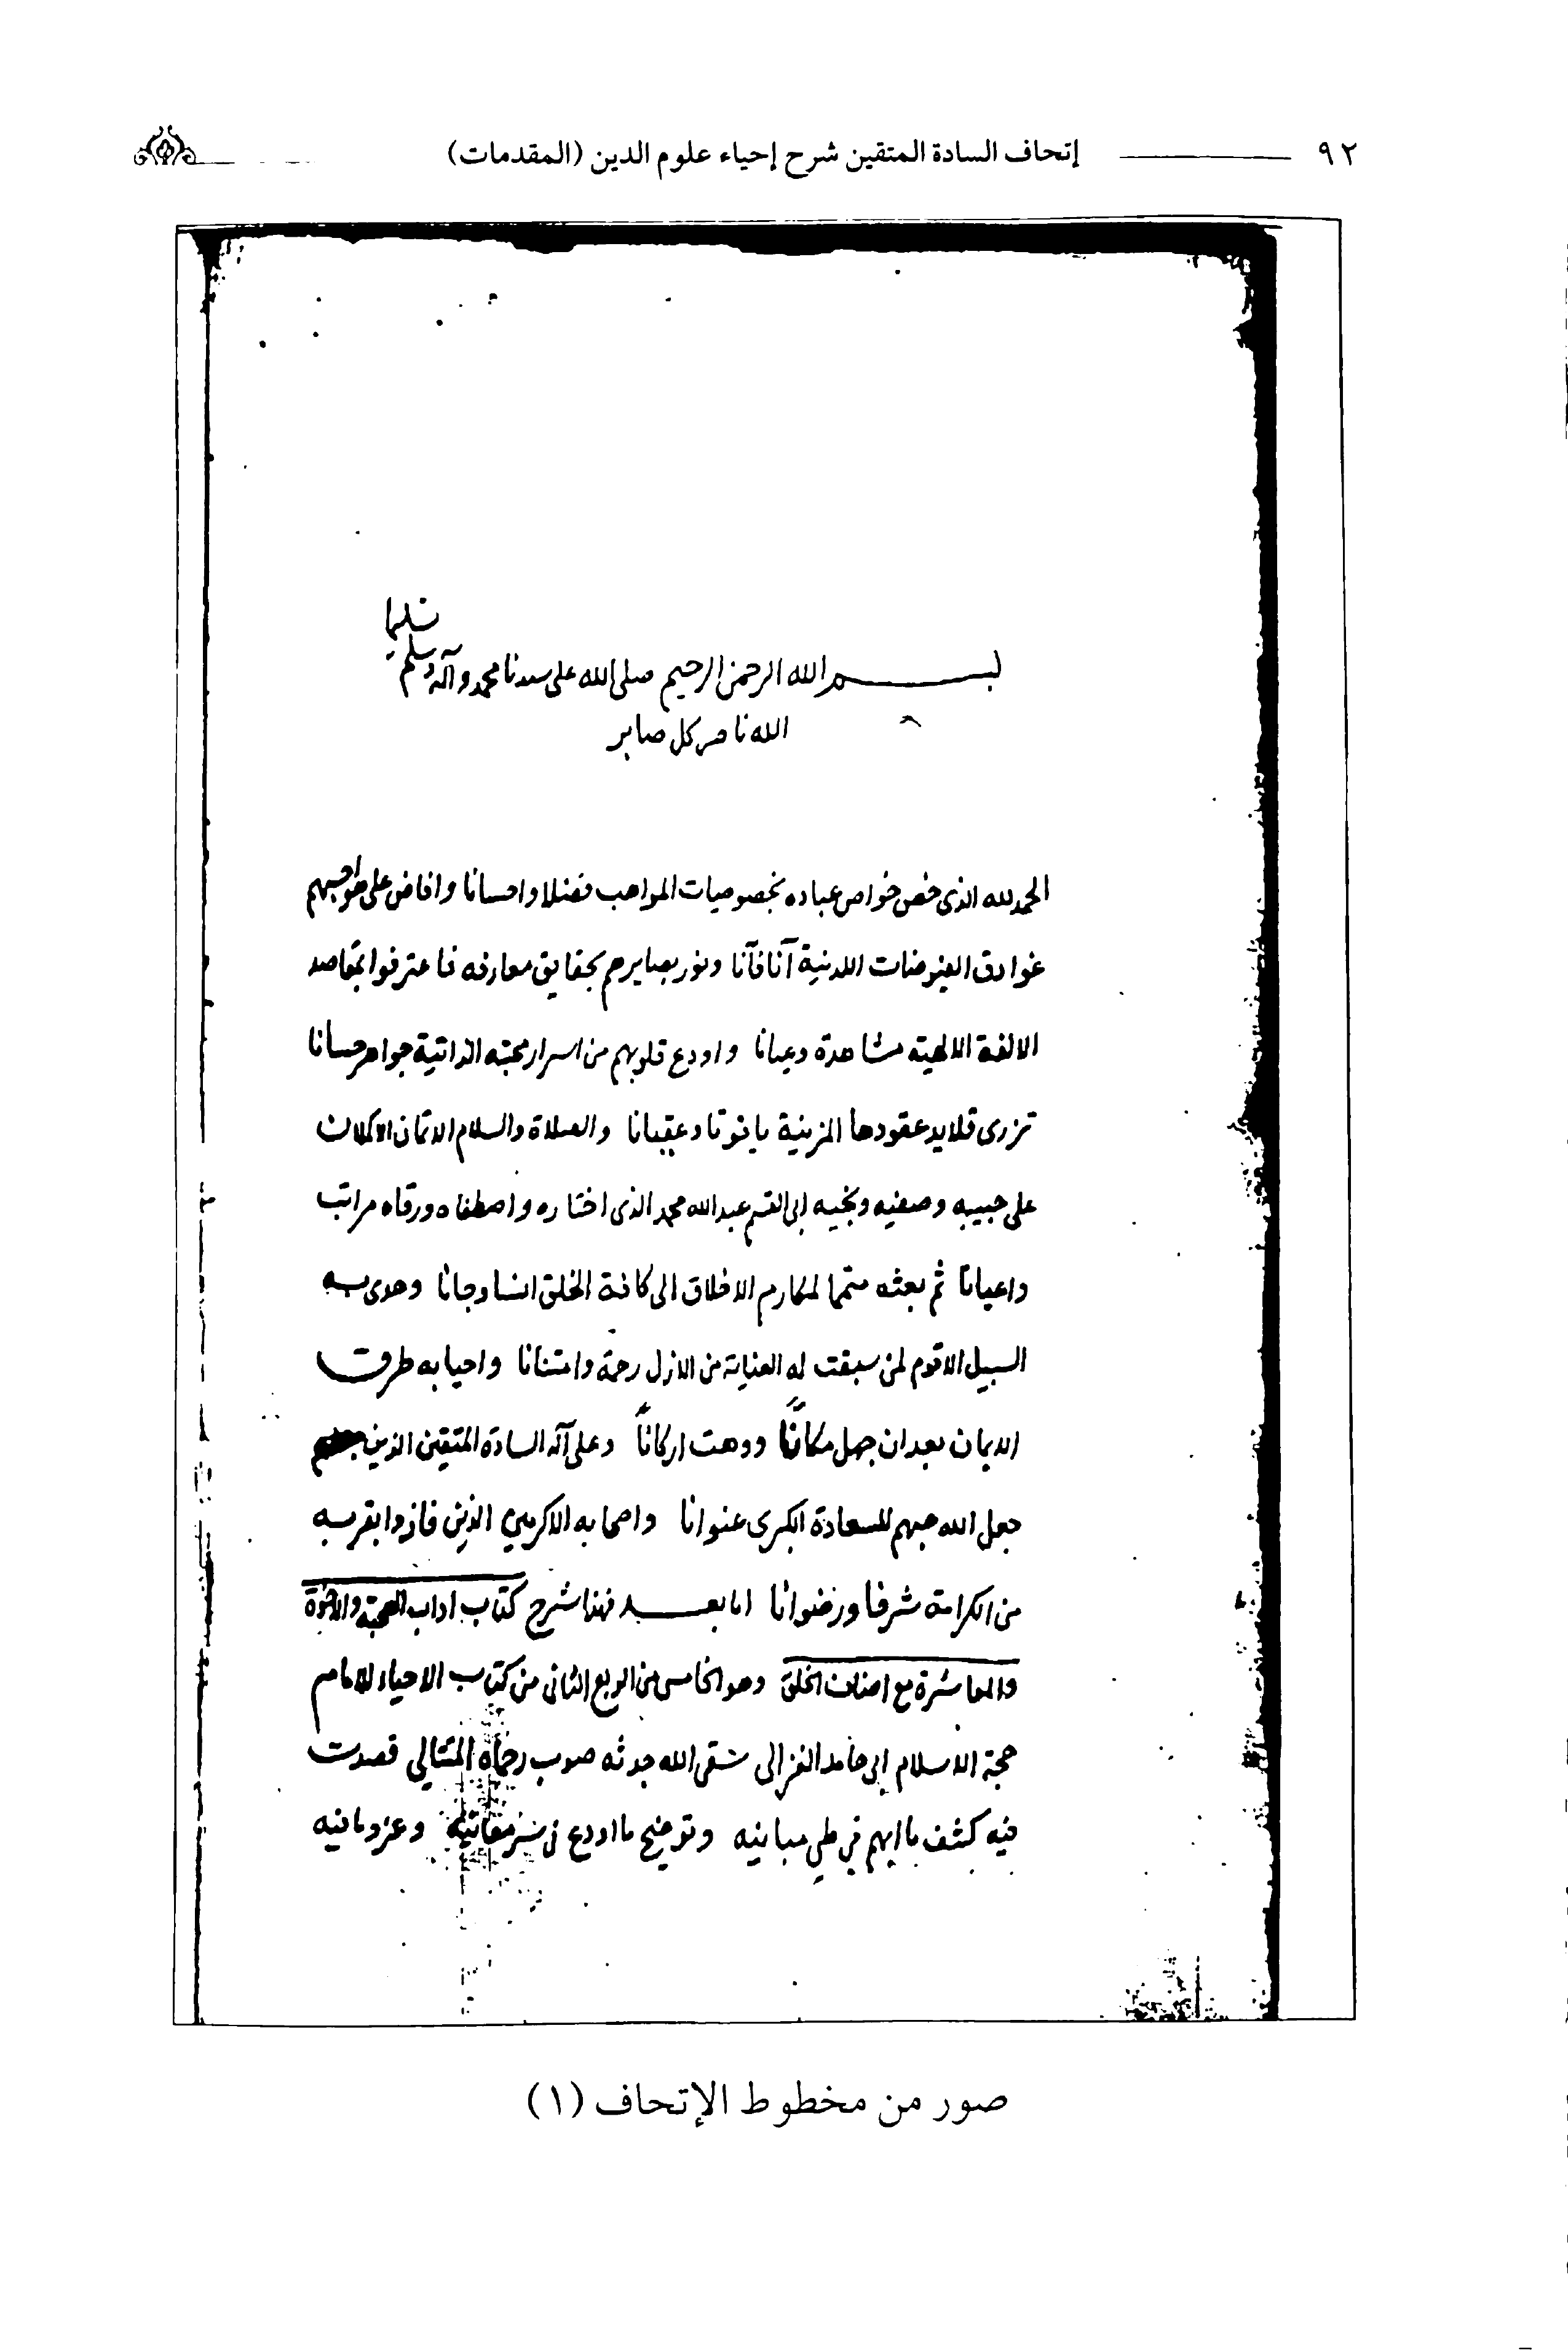 ٩٢ إتحاف السادة المتقين شرح إحياء علوم الدين (المقدمات)
تسليما
بسم الله الرحمن الرحيم صلى الله على سيدنا محمد وآله وسلم
الله ناصر كل صابر
الحمد لله الذى خص خواص عباده بخصوصيات المواهب فضلا واحسانا وافاض على
غوادق الفيوضات اللدنية آنا فآنا ونور بصايرهم بحقايق معارفه فاعترفوا بمقاصد
الالفة الالهية مشاهدة وعيانا واودع قلوبهم من اسرار محبته الذاتية جواهر حسانا
تزرى قلايد عقودها المزينة ياقوتا وعقيانا والصلاة والسلام الاتمان الاكملان
على حبيبه وصفيه ونجيه ابى القسم عبد الله محمد الذى اختاره واصطفاه ورقاه مراتب
واعيانا ثم بعثه متمما لمكارم الاخلاق الى كافة الخلق انسا وجانا وهدى به
السبيل الاقوم لمن سبقت له العناية من الازل رحمة وامتنانا واحيا به طرق
الايمان بعد ان جهل مكانًا ووهت اركانًا وعلى آله السادة المتقين الذين
جعل الله حبهم للسعادة الكبرى عنوانا واصحابه الاكرمين الذين فازوا بقربه
من الكرامة شرفا ورضوانا اما بعد فهذا شرح كتاب اداب الصحبة والاخوة
والمعاشرة مع اصناف الخلق وهو الخامس من الربع الثانى من كتاب الاحياء للامام
حجة الاسلام ابى حامد الغزالى سقى الله جدثه صوب رحماه المتتالي قصدت
فيه كشف ما ابهم فى طي مبانيه وتوضيح ما اودع فى نشر معانيه وعزو ما فيه
صور من مخطوط الإتحاف (١)